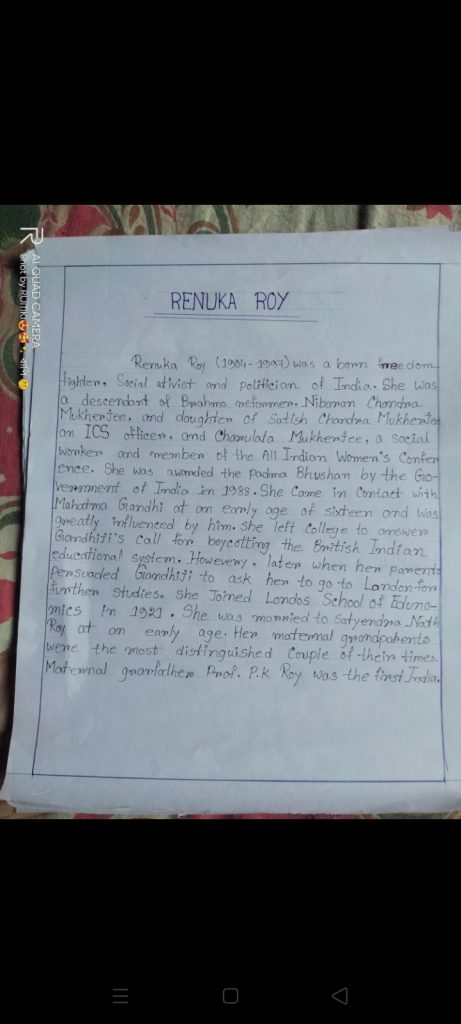 RENUKA ROY
Renuka Roy (1904-1997) was a born freedom
fighter, Social ativist and politician of India. She was
a descendant of Brahmo reformer, Nibaran Chandra
Mukherjee, and daughter of Satish Chandra Mukherjee
an ICS officer, and Charulata Mukherjee, a social
worker and member of the All Indian Women's Confer
ence. She was awarded the Padma Bhushan by the Go-
vernment of India in 1988. She Came in Contact with
Mahatma Gandhi at an early age of sixteen and was
greatly influenced by him. She left College to answer
Gandhiji's call for boycotting the British Indian
educational system. However, later when her parents
persuaded Gandhiji to ask her to go to London for
further studies. She Joined Londos School of Edono-
mics in 1921. She was married to Satyendra Nath
Roy at an early age. Her maternal grandparents
were the most distinguished Couple of their times.
Maternal granfather Prof. P.K Roy was the first India.
AI QUAD CAMERA
Shot by RUMKI